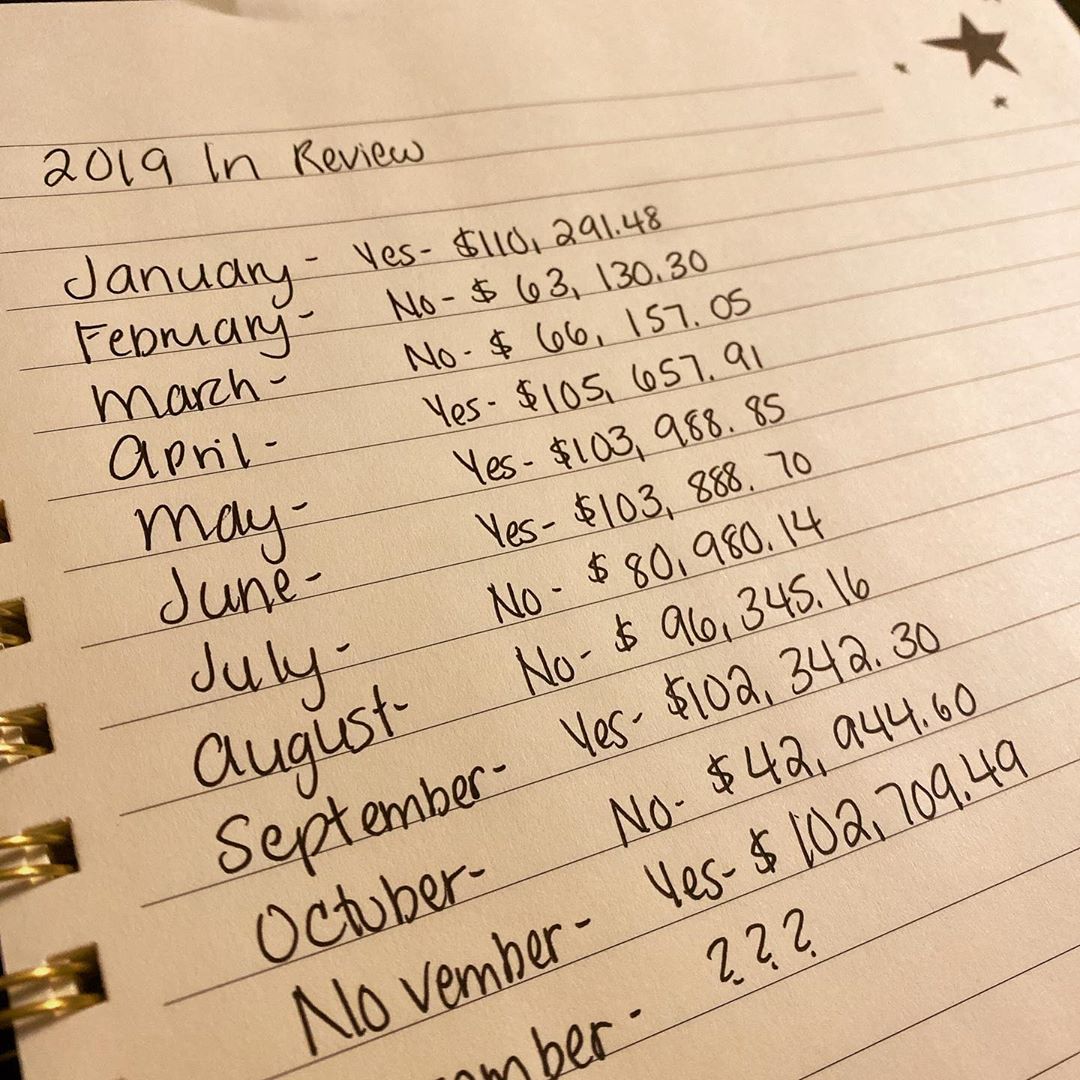 2019 In Review
January - Yes - $110, 291.48
February - No - $ 63, 130.30
March - No - $ 66, 157.05
April - Yes - $105, 657.91
May - Yes - $103, 988.85
June - Yes - $103, 888.70
July - No - $ 80, 980.14
August - No - $ 96, 345.16
September - Yes - $102, 342.30
October - No - $42, 944.60
November - Yes - $ 102, 709.49
mber - ???